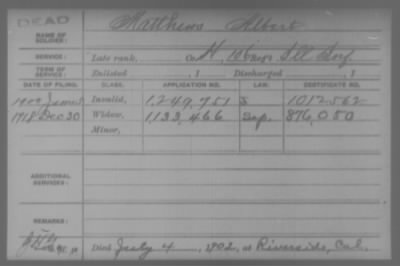 DEAD
NAME OF SOLDIER: Matthews Albert
SERVICE: Late rank, Co. H, 106 Reg't Ill Inf.
TERM OF SERVICE: Enlisted , 1 Discharged , 1
DATE OF FILING. CLASS. APPLICATION NO. LAW. CERTIFICATE NO.
1900 June Invalid, 1,249,751 1012562
1918 Dec 30 Widow, 1133,466 876,080
Minor,
ADDITIONAL SERVICES:
REMARKS:
Died July 4, 1902, at Riverside, Cal.